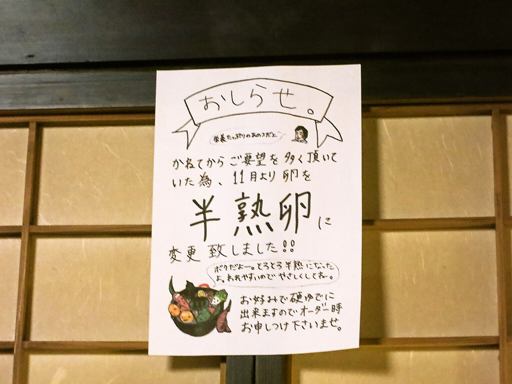 おしらせ。
栄養たっぷりのあのコだと
かねてからご要望を多く頂いて
いた為、11月より卵を
半熟卵に
変更致しました!!
ボクだよー。とろとろ半熟になった
よ、われやすいのでやさしくしてネー。
お好みで硬ゆでに
出来ますのでオーダー時
お申しつけ下さいませ。